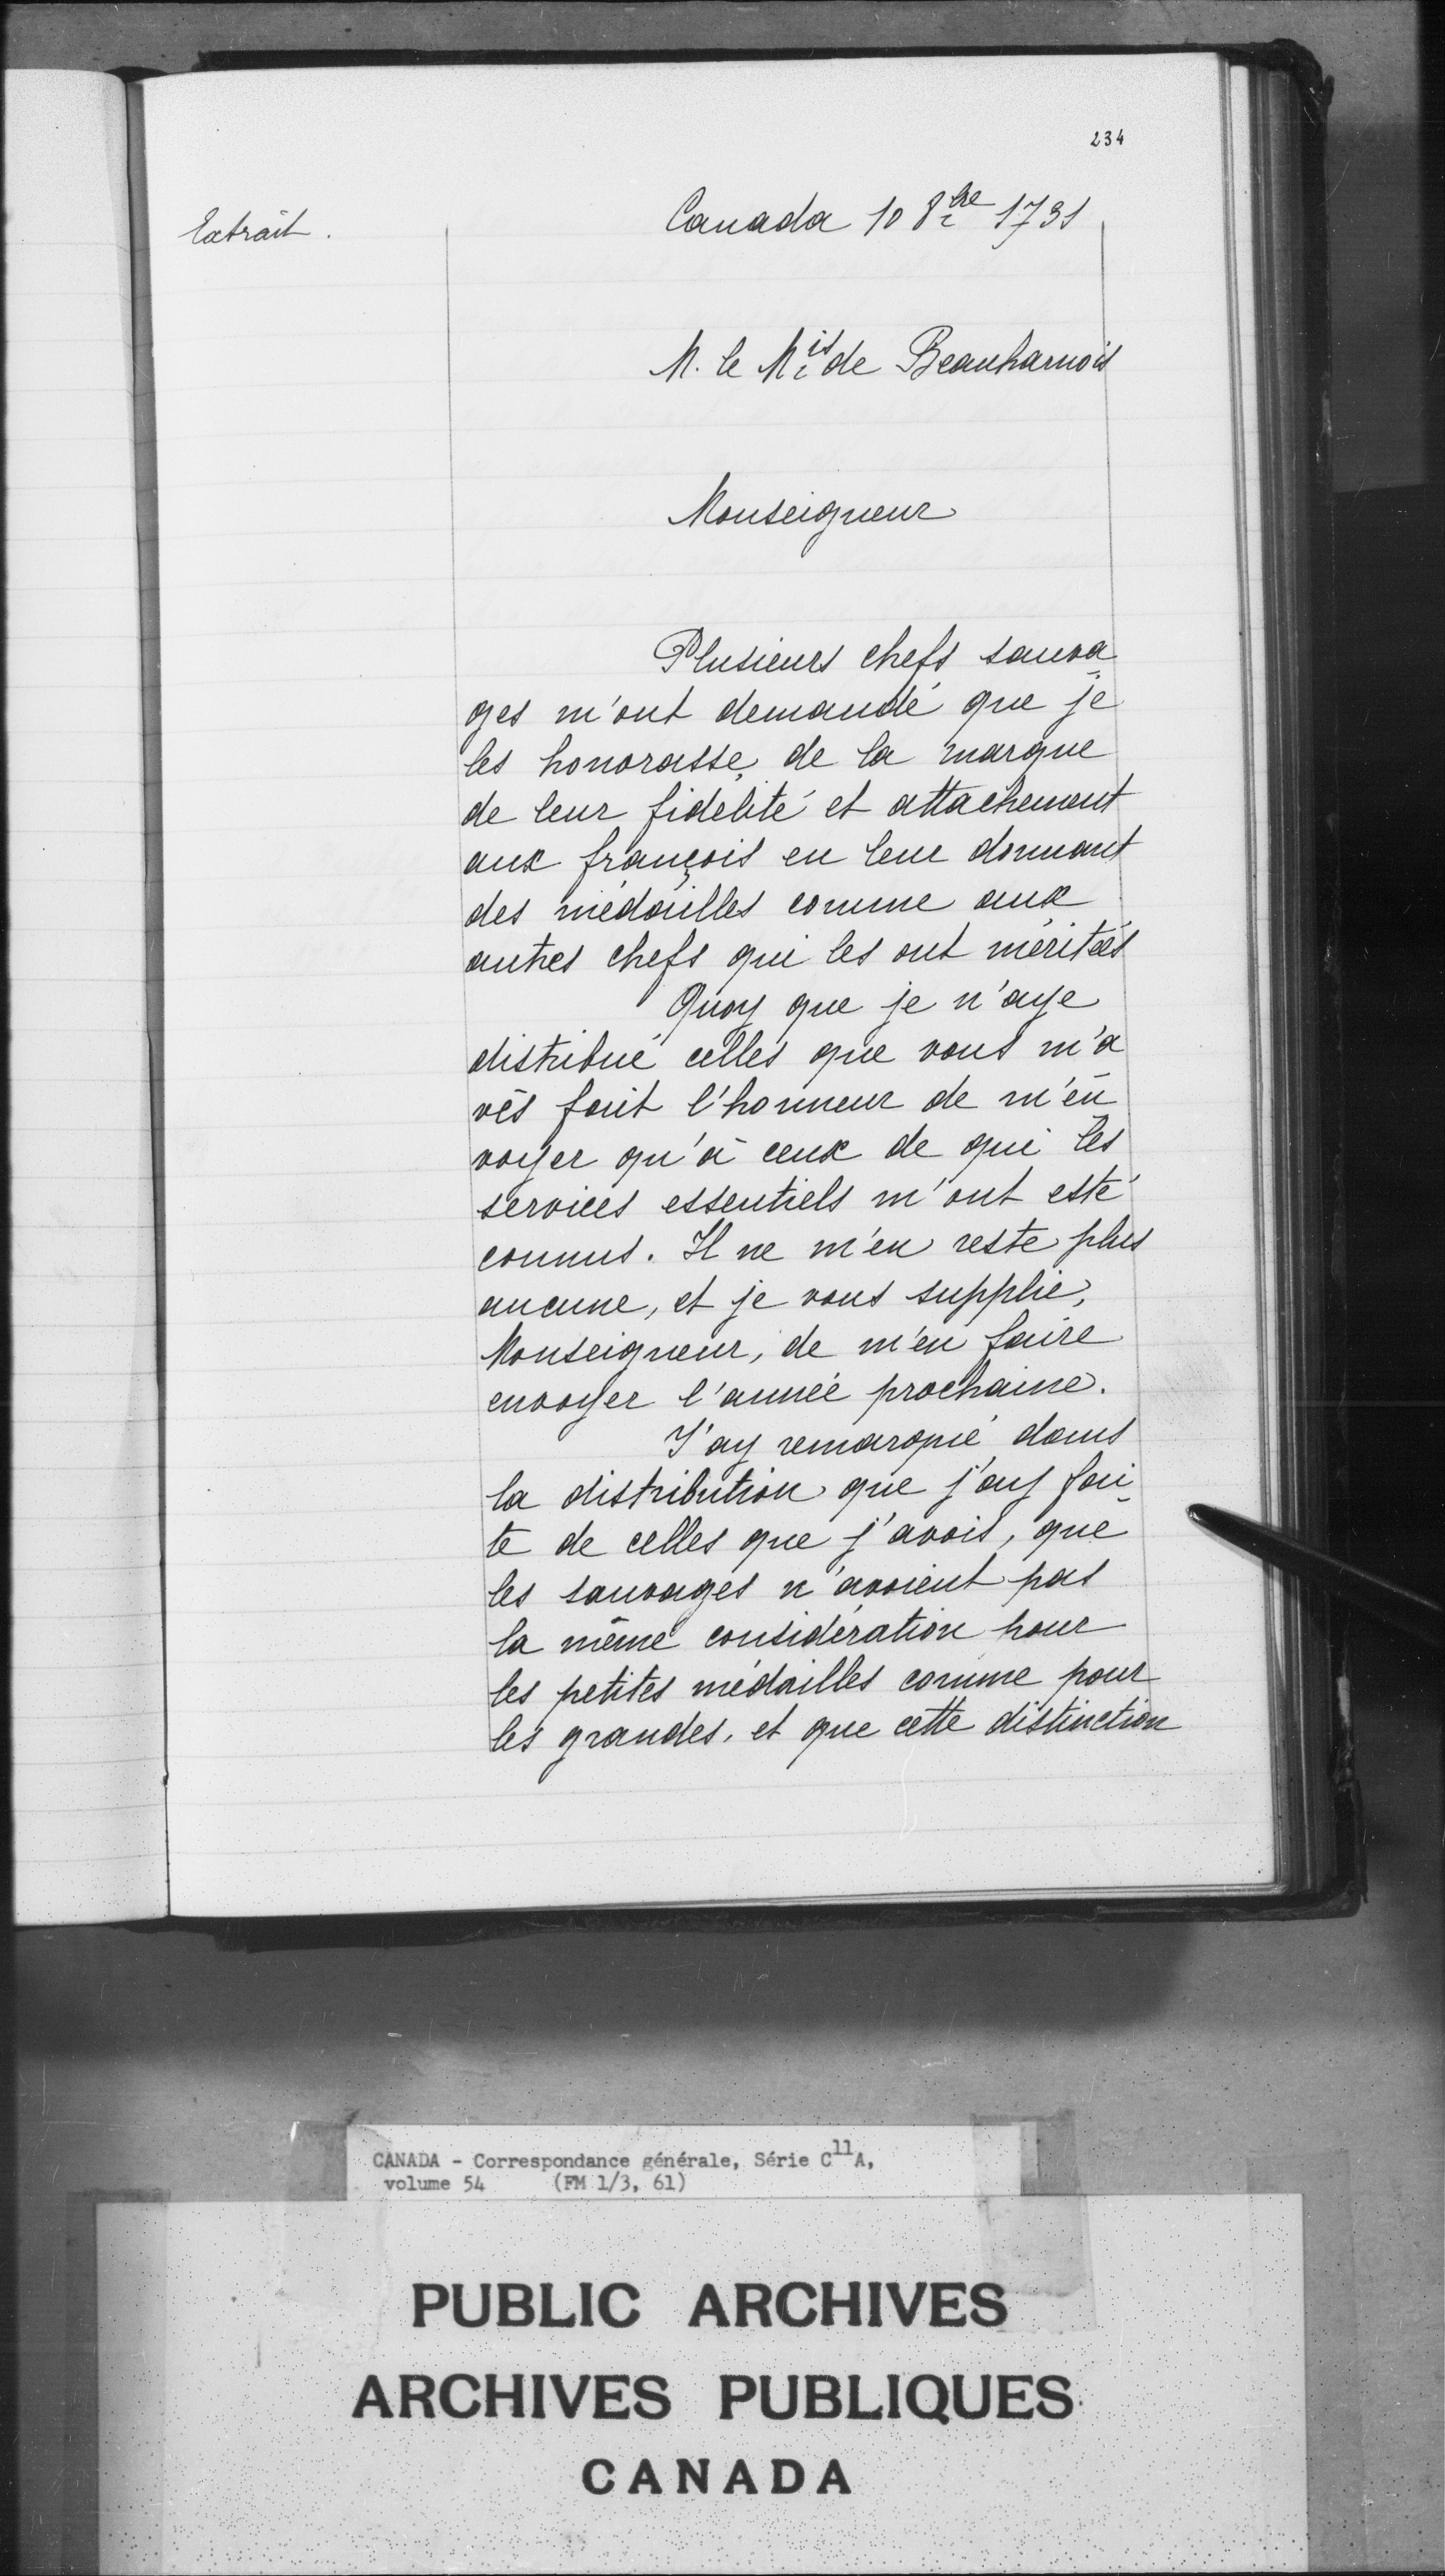 234
Extrait.
Canada 10 8bre 1731
M. le Mis de Beauharnois
Monseigneur
Plusieurs chefs sauva-
ges m'ont demandé que je
les honorasse, de la marque
de leur fidélité et attachement
aux françois en leur donnant
des médailles comme aux
autres chefs qui les ont méritées
Quoy que je n'aye
distribué celles que vous m'a
vés fait l'honneur de m'en-
voyer qu'à ceux de qui les
services essentiels m'ont esté
connus. Il ne m'en reste plus
aucune, et je vous supplie,
Monseigneur, de m'en faire
envoyer l'année prochaine.
J'ay remarqué dans
la distribution que j'ay fai-
te de celles que j'avois, que
les sauvages n'avoient pas
la même considération pour
les petites médailles comme pour
les grandes, et que cette distinction
CANADA - Correspondance générale, Série C11A,
volume 54 (FM 1/3, 61)
PUBLIC ARCHIVES
ARCHIVES PUBLIQUES
CANADA